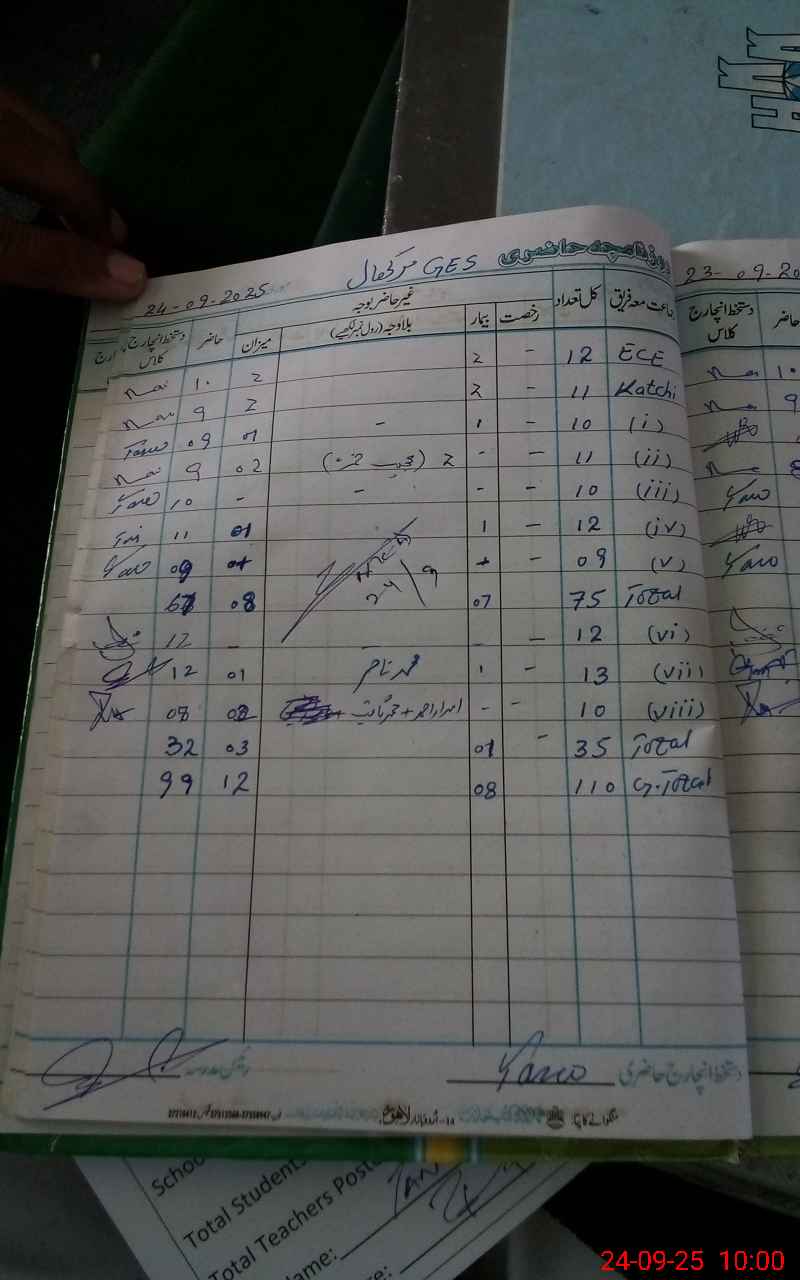 روزنامچہ حاضری GES مرکھال 24-09-2025
جماعت معہ فریق کل تعداد رخصت بیمار غیر حاضر بوجہ بلاوجہ (رول نمبر لکھیے) میزان حاضر دستخط انچارج کلاس
ECE 12 - 2 2 10
Katchi 11 - 2 2 9
(i) 10 - 1 - 01 09
(ii) 11 - - 2 02 9
(iii) 10 - - - - 10
(iv) 12 - 1 01 11
(v) 09 - 09
Total 75 07 08 67
24/9
(vi) 12 - - - 12
(vii) 13 - 1 محمد ناصر 01 12
(viii) 10 - - اسرار احمد + محمد ثاقب 02 08
Total 35 - 01 03 32
G.Total 110 08 12 99
دستخط انچارج حاضری
23-09-20
دستخط انچارج کلاس حاضر
School
Total Students
Total Teachers Poste
Name:
24-09-25 10:00